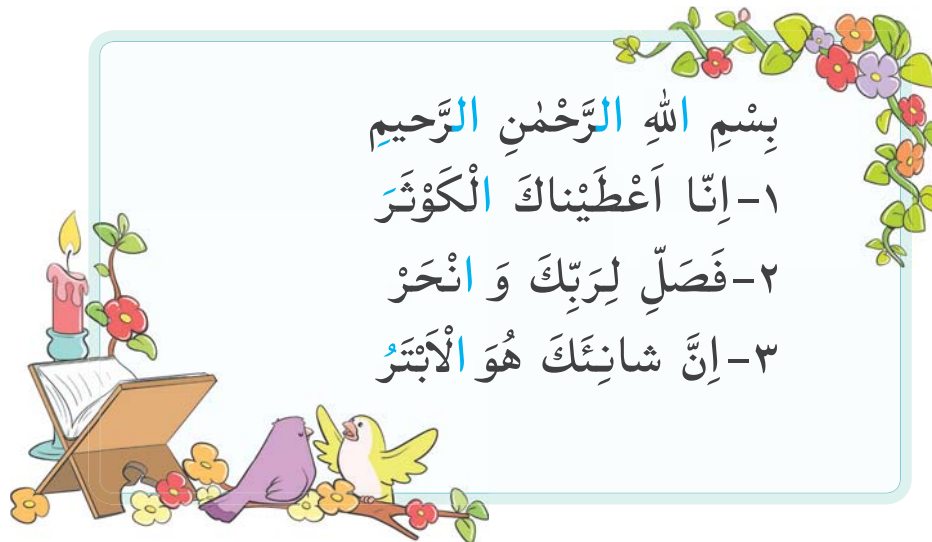 بِسْمِ اللهِ الرَّحْمٰنِ الرَّحیمِ
۱-اِنّا اَعْطَیْناكَ الْكَوْثَرَ
۲-فَصَلِّ لِرَبِّكَ وَ انْحَرْ
۳-اِنَّ شانِئَكَ هُوَ الْاَبْتَرُ